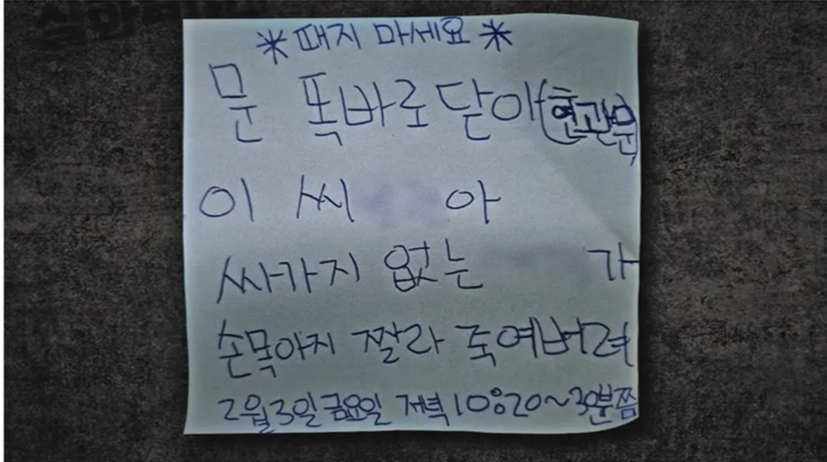 *떼지 마세요*
문 똑바로 닫아(현관문)
이 씨 아
싸가지 없는 가
손목아지 짤라 죽여버려
2월3일금요일 저녁10:20~30분쯤